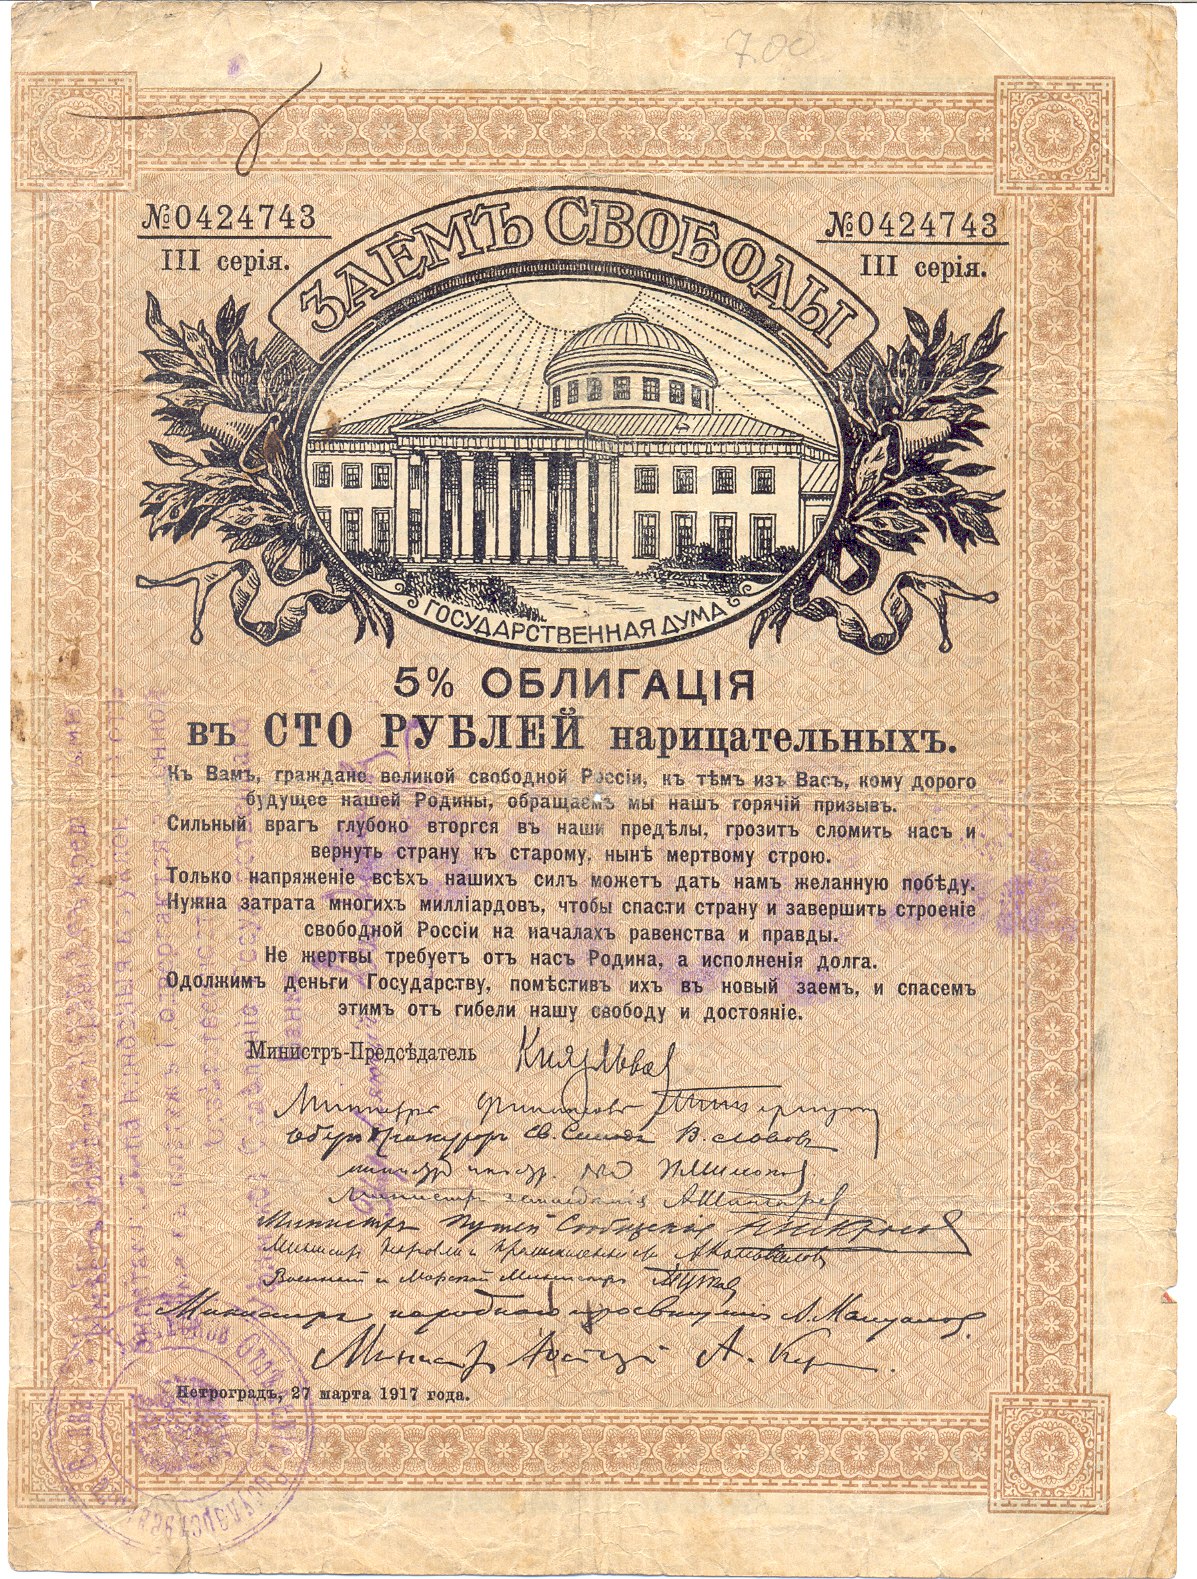 7.00
№0424743
III серія.
№0424743
III серія.
ЗАЕМЪ СВОБОДЫ
ГОСУДАРСТВЕННАЯ ДУМА
5% ОБЛИГАЦІЯ
въ СТО РУБЛЕЙ нарицательныхъ.
Къ Вамъ, граждане великой свободной Россіи, къ тѣмъ изъ Васъ, кому дорого
будущее нашей Родины, обращаемъ мы нашъ горячій призывъ.
Сильный врагъ глубоко вторгся въ наши предѣлы, грозитъ сломить насъ и
вернуть страну къ старому, нынѣ мертвому строю.
Только напряженіе всѣхъ нашихъ силъ можетъ дать намъ желанную побѣду.
Нужна затрата многихъ милліардовъ, чтобы спасти страну и завершить строеніе
свободной Россіи на началахъ равенства и правды.
Не жертвы требуетъ отъ насъ Родина, а исполненія долга.
Одолжимъ деньги Государству, помѣстивъ ихъ въ новый заемъ, и спасемъ
этимъ отъ гибели нашу свободу и достояніе.
Министръ-Предсѣдатель Князь Львов
Министръ Финансовъ
Оберъ Прокуроръ Св. Синода В. Львов
Министръ А Шингарев
Министръ Путей Сообщения Н Некрасов
Министръ Торговли и Промышленности А Коновалов
Военный и Морской Министръ А Гучков
Министръ народного просвещения А. Мануйлов
Министр Юстиции А. Кер
Петроградъ, 27 марта 1917 года.